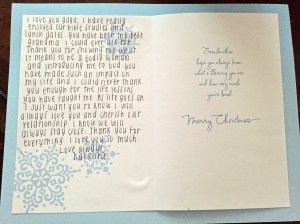 I love you Gaga, I have really
enjoyed our bible studies and
lunch dates. You have been the best
grandma I could ever ask for.
Thank you for showing me what
it means to be a Godly woman
and introducing me to God. You
have made such an impact on
my life and I could never thank
you enough for the life lessons
you have taught me. As life goes on
I just want you to know I will
always love you and cherish our
relationship. I know we will
always stay close. Thank you for
everything. I love you so much
-Love always,
Grandmother,
hope you always know
what a blessing you are
and how very much
you're loved
Merry Christmas